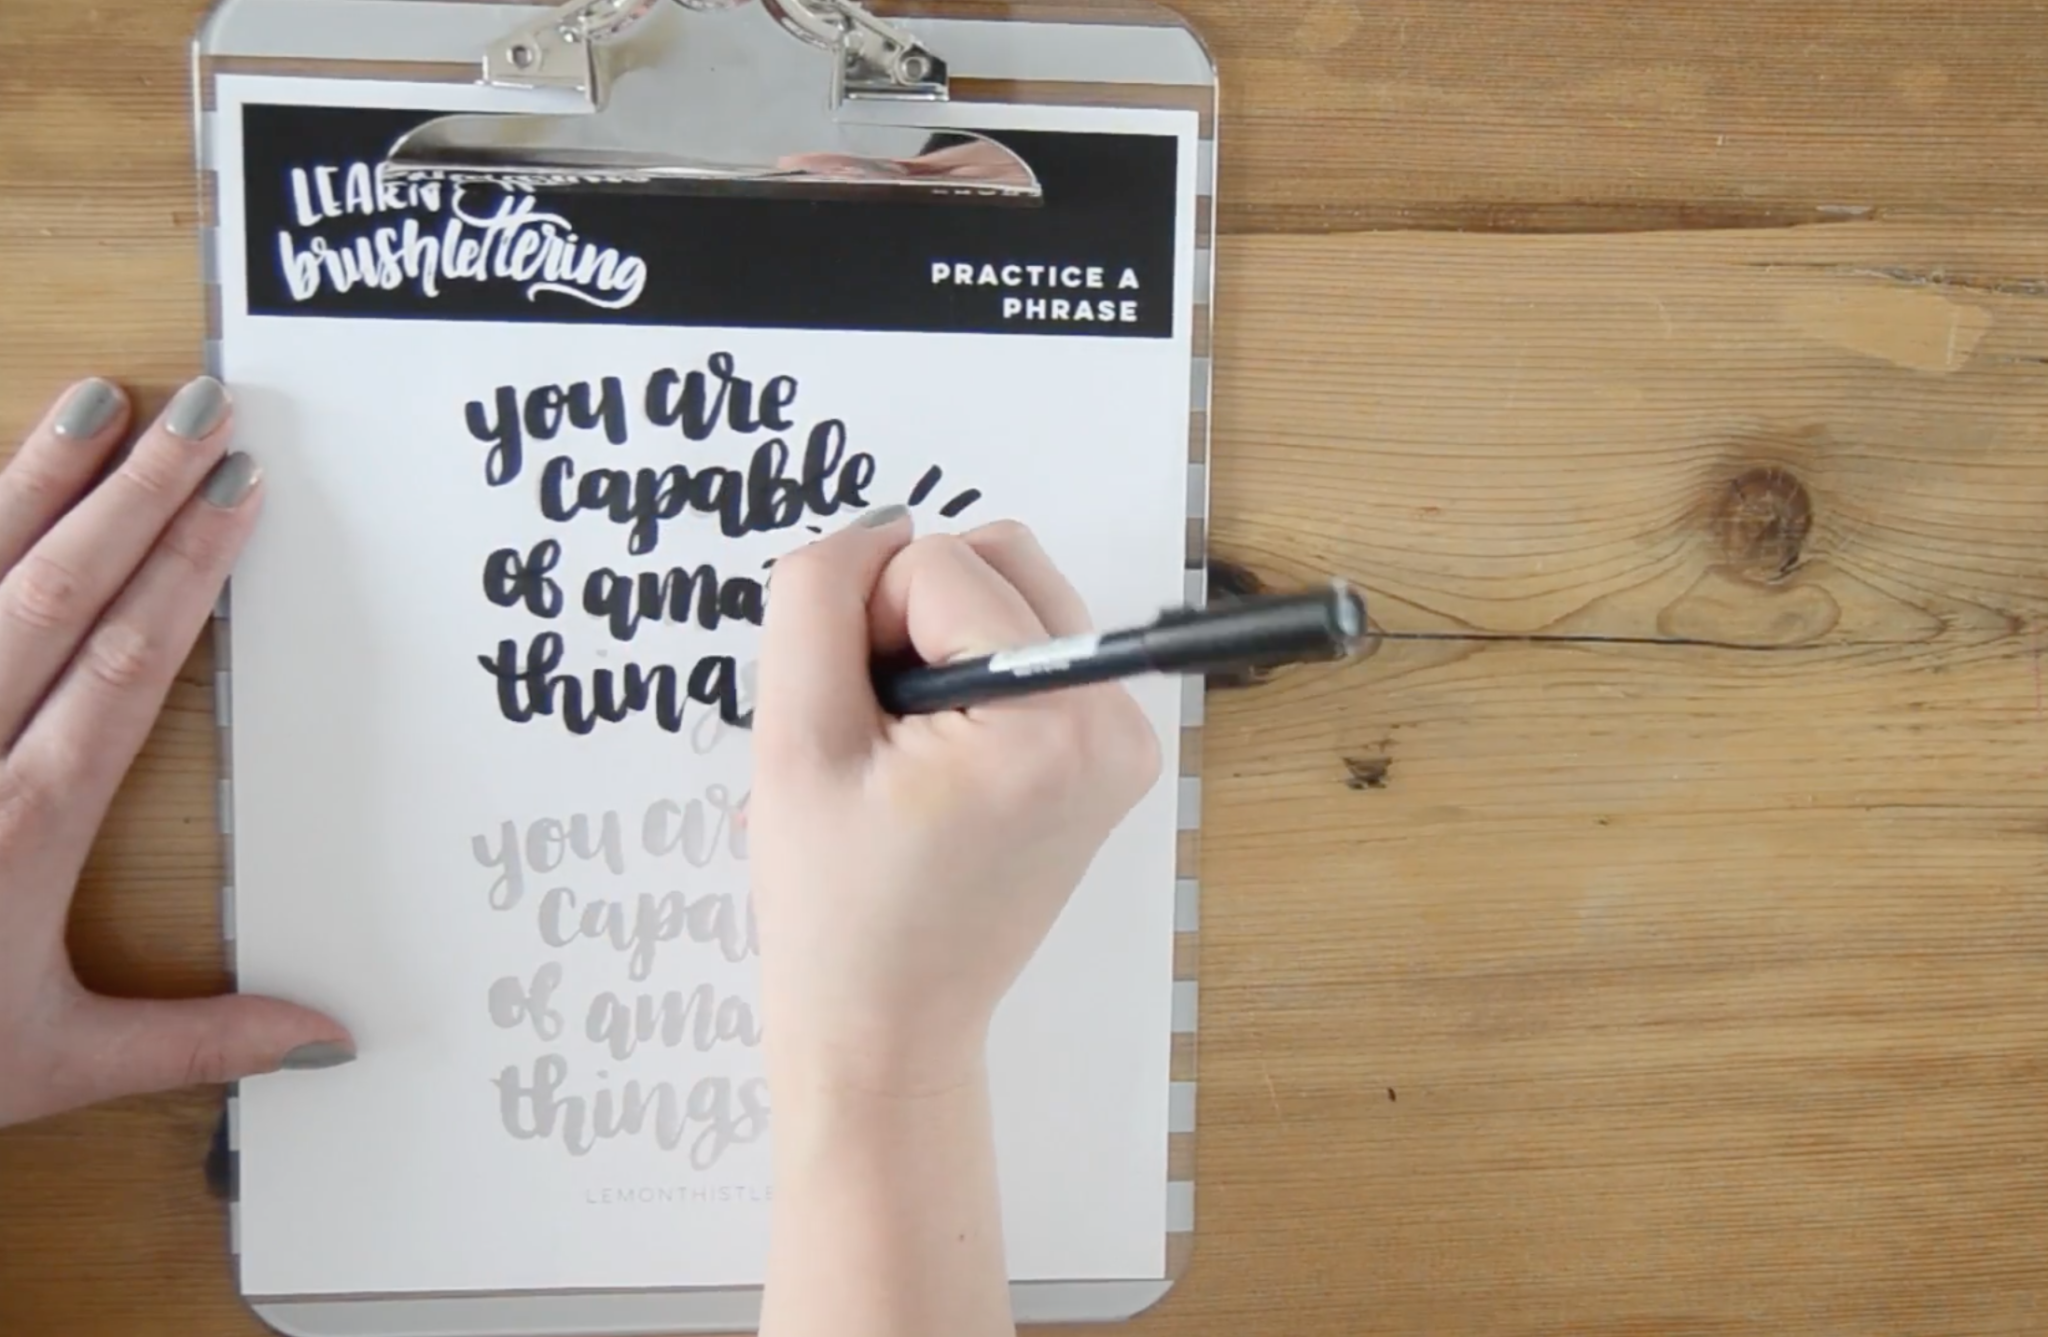 LEARN
brushlettering
PRACTICE A
PHRASE
you are
capable
of ama
thing
you are
capa
of ama
things
LEMONTHISTLE